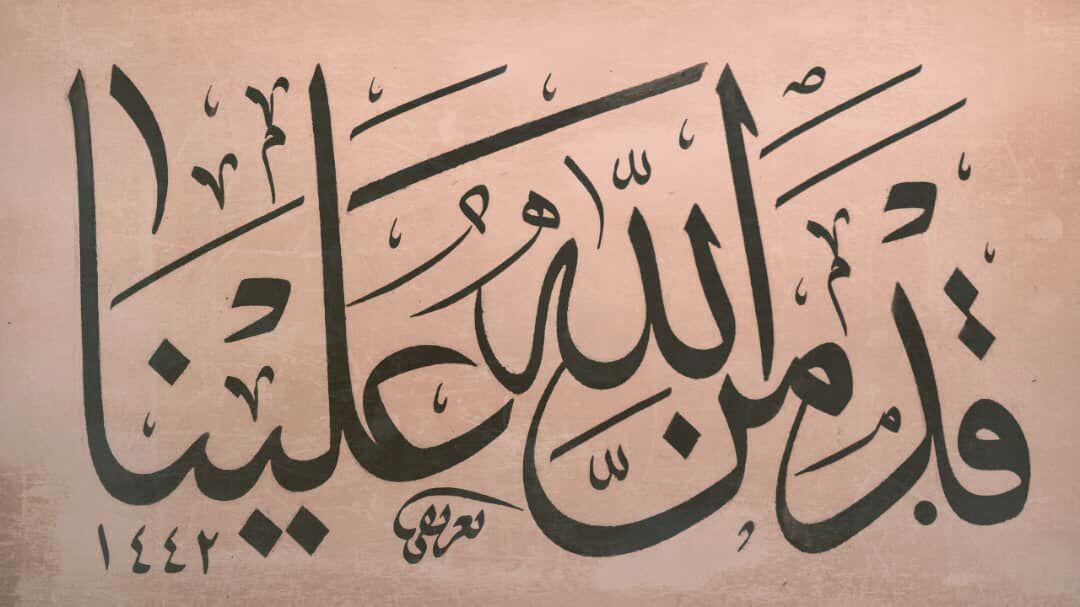 قَدْ مَنَّ اللّٰهُ عَلَيْنَا
١٤٤٢